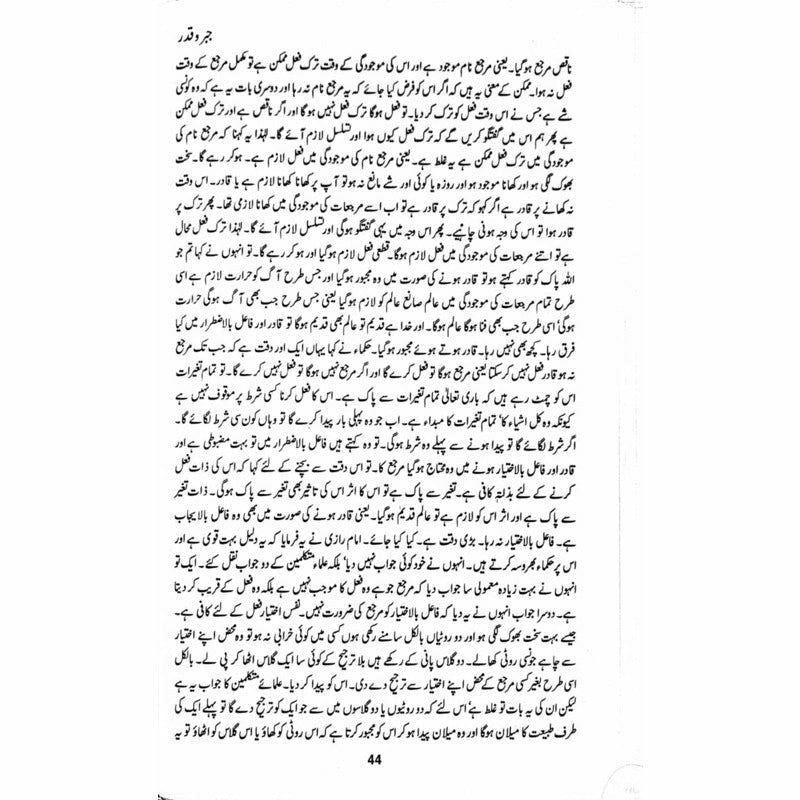 جبر و قدر
ناقص مرجع ہوگیا۔ یعنی مرجع تام موجود ہے اور اس کی موجودگی کے وقت ترک فعل ممکن ہے تو مکمل مرجع کے وقت
فعل نہ ہوا۔ ممکن کے معنی یہ ہیں کہ اگر اس کو فرض کیا جائے کہ یہ مرجع تام نہ رہا اور دوسری بات یہ ہے کہ وہ کونسی
شے ہے جس نے اس وقت فعل کو ترک کر دیا۔ تو فعل ہوگا ترک فعل نہیں ہوگا اور اگر ناقص ہے اور ترک فعل ممکن
ہے پھر ہم اس میں گفتگو کریں گے کہ ترک فعل کیوں ہوا اور تسلسل لازم آئے گا۔ لہٰذا یہ کہنا کہ مرجع تام کی
موجودگی میں ترک فعل ممکن ہے یہ غلط ہے۔ یعنی مرجع تام کی موجودگی میں فعل لازم ہے۔ ہو کر رہے گا۔ سخت
بھوک لگی ہو اور کھانا موجود ہو اور روزہ یا کوئی اور شے مانع نہ ہو تو آپ پر کھانا کھانا لازم ہے یا قادر۔ اس وقت
نہ کھانے پر قادر ہے اگر کہو کہ ترک پر قادر ہے تو اب اسے مرجعات کی موجودگی میں کھانا لازمی تھا۔ پھر ترک پر
قادر ہوا تو اس کی وجہ ہونی چاہیے۔ پھر اس وجہ میں یہی گفتگو ہوگی اور تسلسل لازم آئے گا۔ لہٰذا ترک فعل محال
ہے تو اتنے مرجعات کی موجودگی میں فعل لازم ہوگا۔ قطعی فعل لازم ہوگیا اور ہو کر رہے گا۔ تو انہوں نے کہا تم جو
اللہ پاک کو قادر کہتے ہو تو قادر ہونے کی صورت میں وہ مجبور ہوگیا اور جس طرح آگ کو حرارت لازم ہے اسی
طرح تمام مرجعات کی موجودگی میں عالم صانع عالم کو لازم ہوگیا یعنی جس طرح جب بھی آگ ہوگی حرارت
ہوگی‘ اسی طرح جب بھی فنا ہوگا عالم ہوگا۔ اور خدا ہے قدیم تو عالم بھی قدیم ہوگا تو قادر اور فاعل بالاضطرار میں کیا
فرق رہا۔ کچھ بھی نہیں رہا۔ قادر ہوتے ہوئے مجبور ہوگیا۔ حکماء نے کہا یہاں ایک اور دقت ہے کہ جب تک مرجع
نہ ہو قادر فعل نہیں کر سکتا یعنی مرجع ہوگا تو فعل کرے گا اور اگر مرجع نہیں ہوگا تو فعل نہیں کرے گا۔ تو تمام تغیرات
اس کو چمٹ رہے ہیں کہ باری تعالیٰ تمام تغیرات سے پاک ہے۔ اس کا فعل کرنا کسی شرط پر موقوف نہیں ہے
کیونکہ وہ کل اشیاء کا‘ تمام تغیرات کا مبداء ہے۔ اب جو وہ پہلی بار پیدا کرے گا تو وہاں کون سی شرط لگائے گا۔
اگر شرط لگائے گا تو پیدا ہونے سے پہلے وہ شرط ہوگی۔ تو وہ کہتے ہیں فاعل بالاضطرار میں تو بہت مضبوطی ہے اور
قادر اور فاعل بالاختیار ہونے میں وہ محتاج ہوگیا مرجع کا۔ تو اس دقت سے بچنے کے لئے کہا کہ اس کی ذات فعل
کرنے کے لئے بذاتہٖ کافی ہے۔ تغیر سے پاک ہے تو اس کا اثر اس کی تاثیر بھی تغیر سے پاک ہوگی۔ ذات تغیر
سے پاک ہے اور اثر اس کو لازم ہے تو عالم قدیم ہوگیا۔ یعنی قادر ہونے کی صورت میں بھی وہ فاعل بالایجاب
ہے۔ فاعل بالاختیار نہ رہا۔ بڑی دقت ہے۔ کیا کیا جائے۔ امام رازی نے یہ فرمایا کہ یہ دلیل بہت قوی ہے اور
اس پر حکماء بھروسہ کرتے ہیں۔ انہوں نے خود کوئی جواب نہیں دیا‘ بلکہ علماء متکلمین کے دو جواب نقل کئے۔ ایک تو
انہوں نے بہت زیادہ معمولی سا جواب دیا کہ مرجع جو ہے وہ فعل کا موجب نہیں ہے بلکہ وہ فعل کے قریب کر دیتا
ہے۔ دوسرا جواب انہوں نے یہ دیا کہ فاعل بالاختیار کو مرجع کی ضرورت نہیں۔ نفس اختیار فعل کے لئے کافی ہے۔
جیسے بہت سخت بھوک لگی ہو اور دو روٹیاں بالکل سامنے رکھی ہوں کسی میں کوئی خرابی نہ ہو تو وہ محض اپنے اختیار
سے چاہے جونسی روٹی کھالے۔ دو گلاس پانی کے رکھے ہیں بلا ترجیح کے کوئی سا ایک گلاس اٹھا کر پی لے۔ بالکل
اسی طرح بغیر کسی مرجع کے محض اپنے اختیار سے ترجیح دے دی۔ اس کو پیدا کر دیا۔ علمائے متکلمین کا جواب یہ ہے
لیکن ان کی یہ بات تو غلط ہے‘ اس لئے کہ دو روٹیوں یا دو گلاسوں میں سے جو ایک کو ترجیح دے گا تو پہلے ایک کی
طرف طبیعت کا میلان ہوگا اور وہ میلان پیدا ہو کر اس کو مجبور کرتا ہے کہ اس روٹی کو کھاؤ یا اس گلاس کو اٹھاؤ تو یہ
44